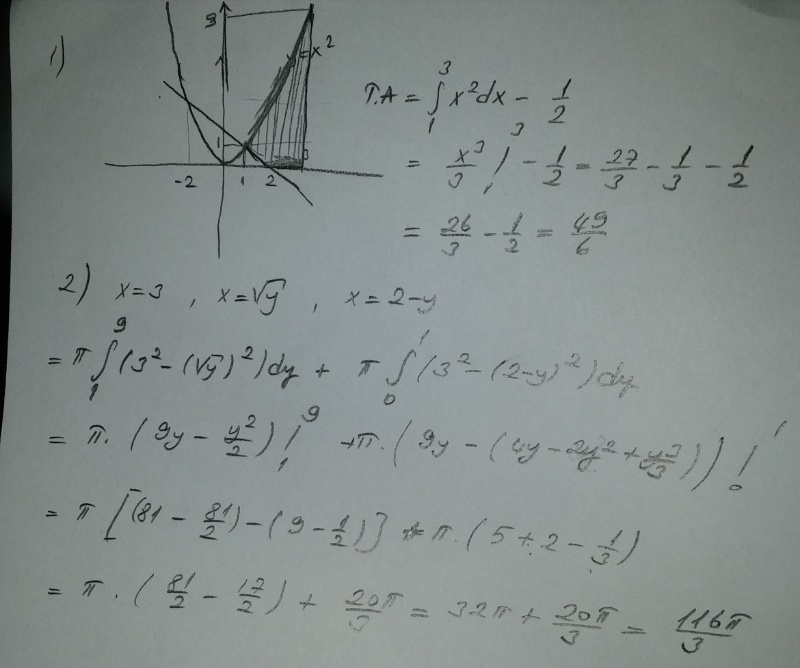 1)
9
y = x²
1
-2 1 2 3
T.A = ∫₁³ x²dx - 1/2
= x³/3 |₁³ - 1/2 = 27/3 - 1/3 - 1/2
= 26/3 - 1/2 = 49/6
2) x=3 , x=√y , x=2-y
= π ∫₁⁹ (3²-(√y)²)dy + π ∫₀¹ (3²-(2-y)²)dy
= π. (9y - y²/2) |₁⁹ + π. (9y - (4y - 2y² + y³/3)) |₀¹
= π [(81 - 81/2) - (9 - 1/2)] + π. (5 + 2 - 1/3)
= π . (81/2 - 17/2) + 20π/3 = 32π + 20π/3 = 116π/3